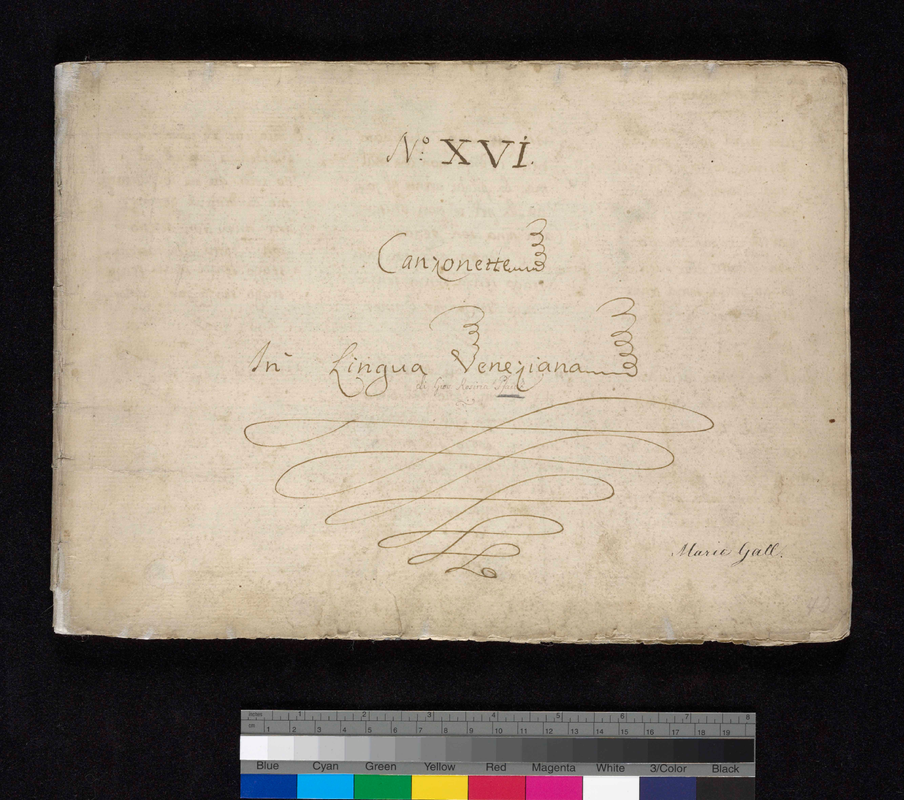 No. XVI.
Canzonette
In Lingua Veneziana
Marie Gall.
mm 1 2 3 4 5 6 7 8
cm 1 2 3 4 5 6 7 8 9 10 11 12 13 14 15 16 17 18 19
Blue Cyan Green Yellow Red Magenta White 3/Color Black